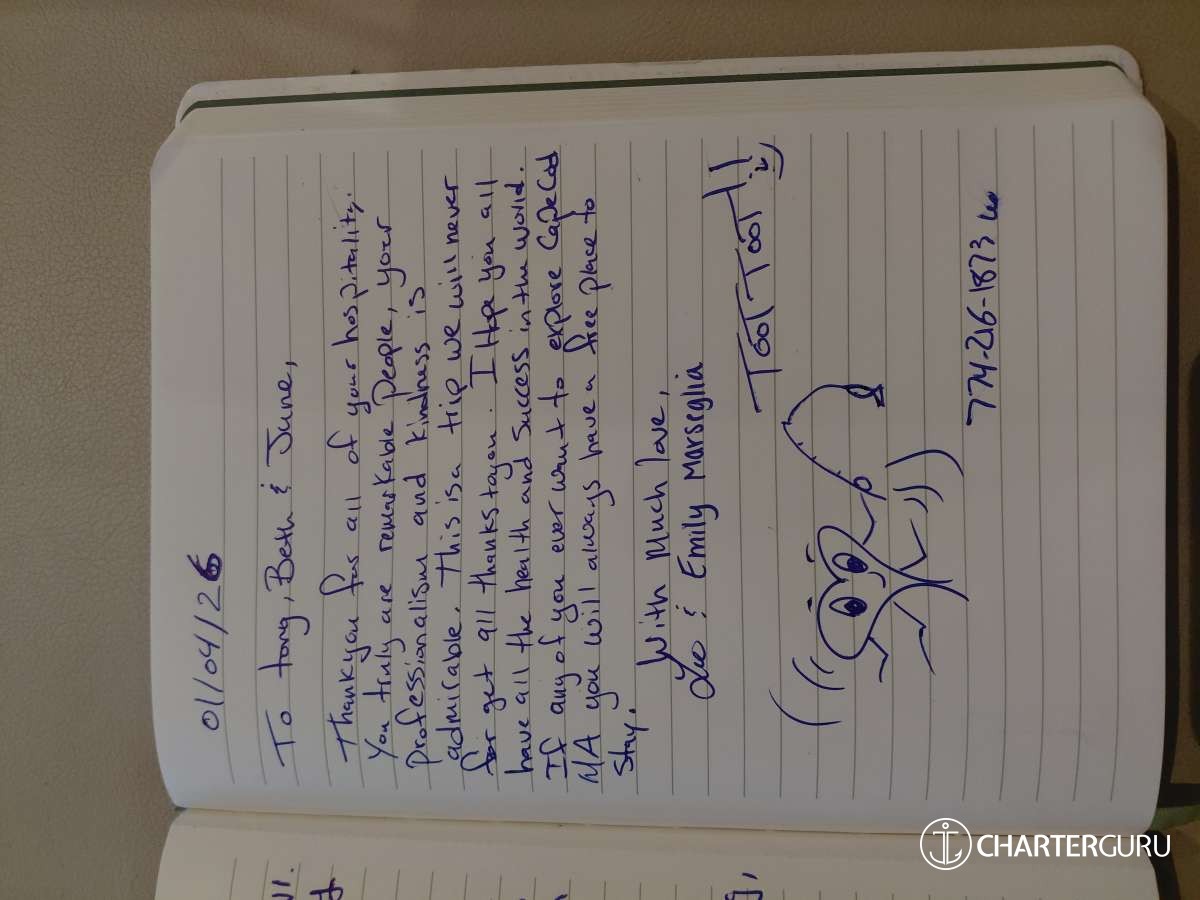 01/04/26
To tony, Beth & June,
Thankyou for all of your hospitality.
You truly are remarkable People, your
professionalism and kindness is
admirable. This is a trip we will never
for get all thanks to you. I Hope you all
have all the health and success in the world.
If any of you ever want to explore Cape Cod
MA you will always have a free place to
stay.
With Much love,
Leo & Emily Marseglia
TOOT TOOT!!
774-216-1873
CHARTERGURU